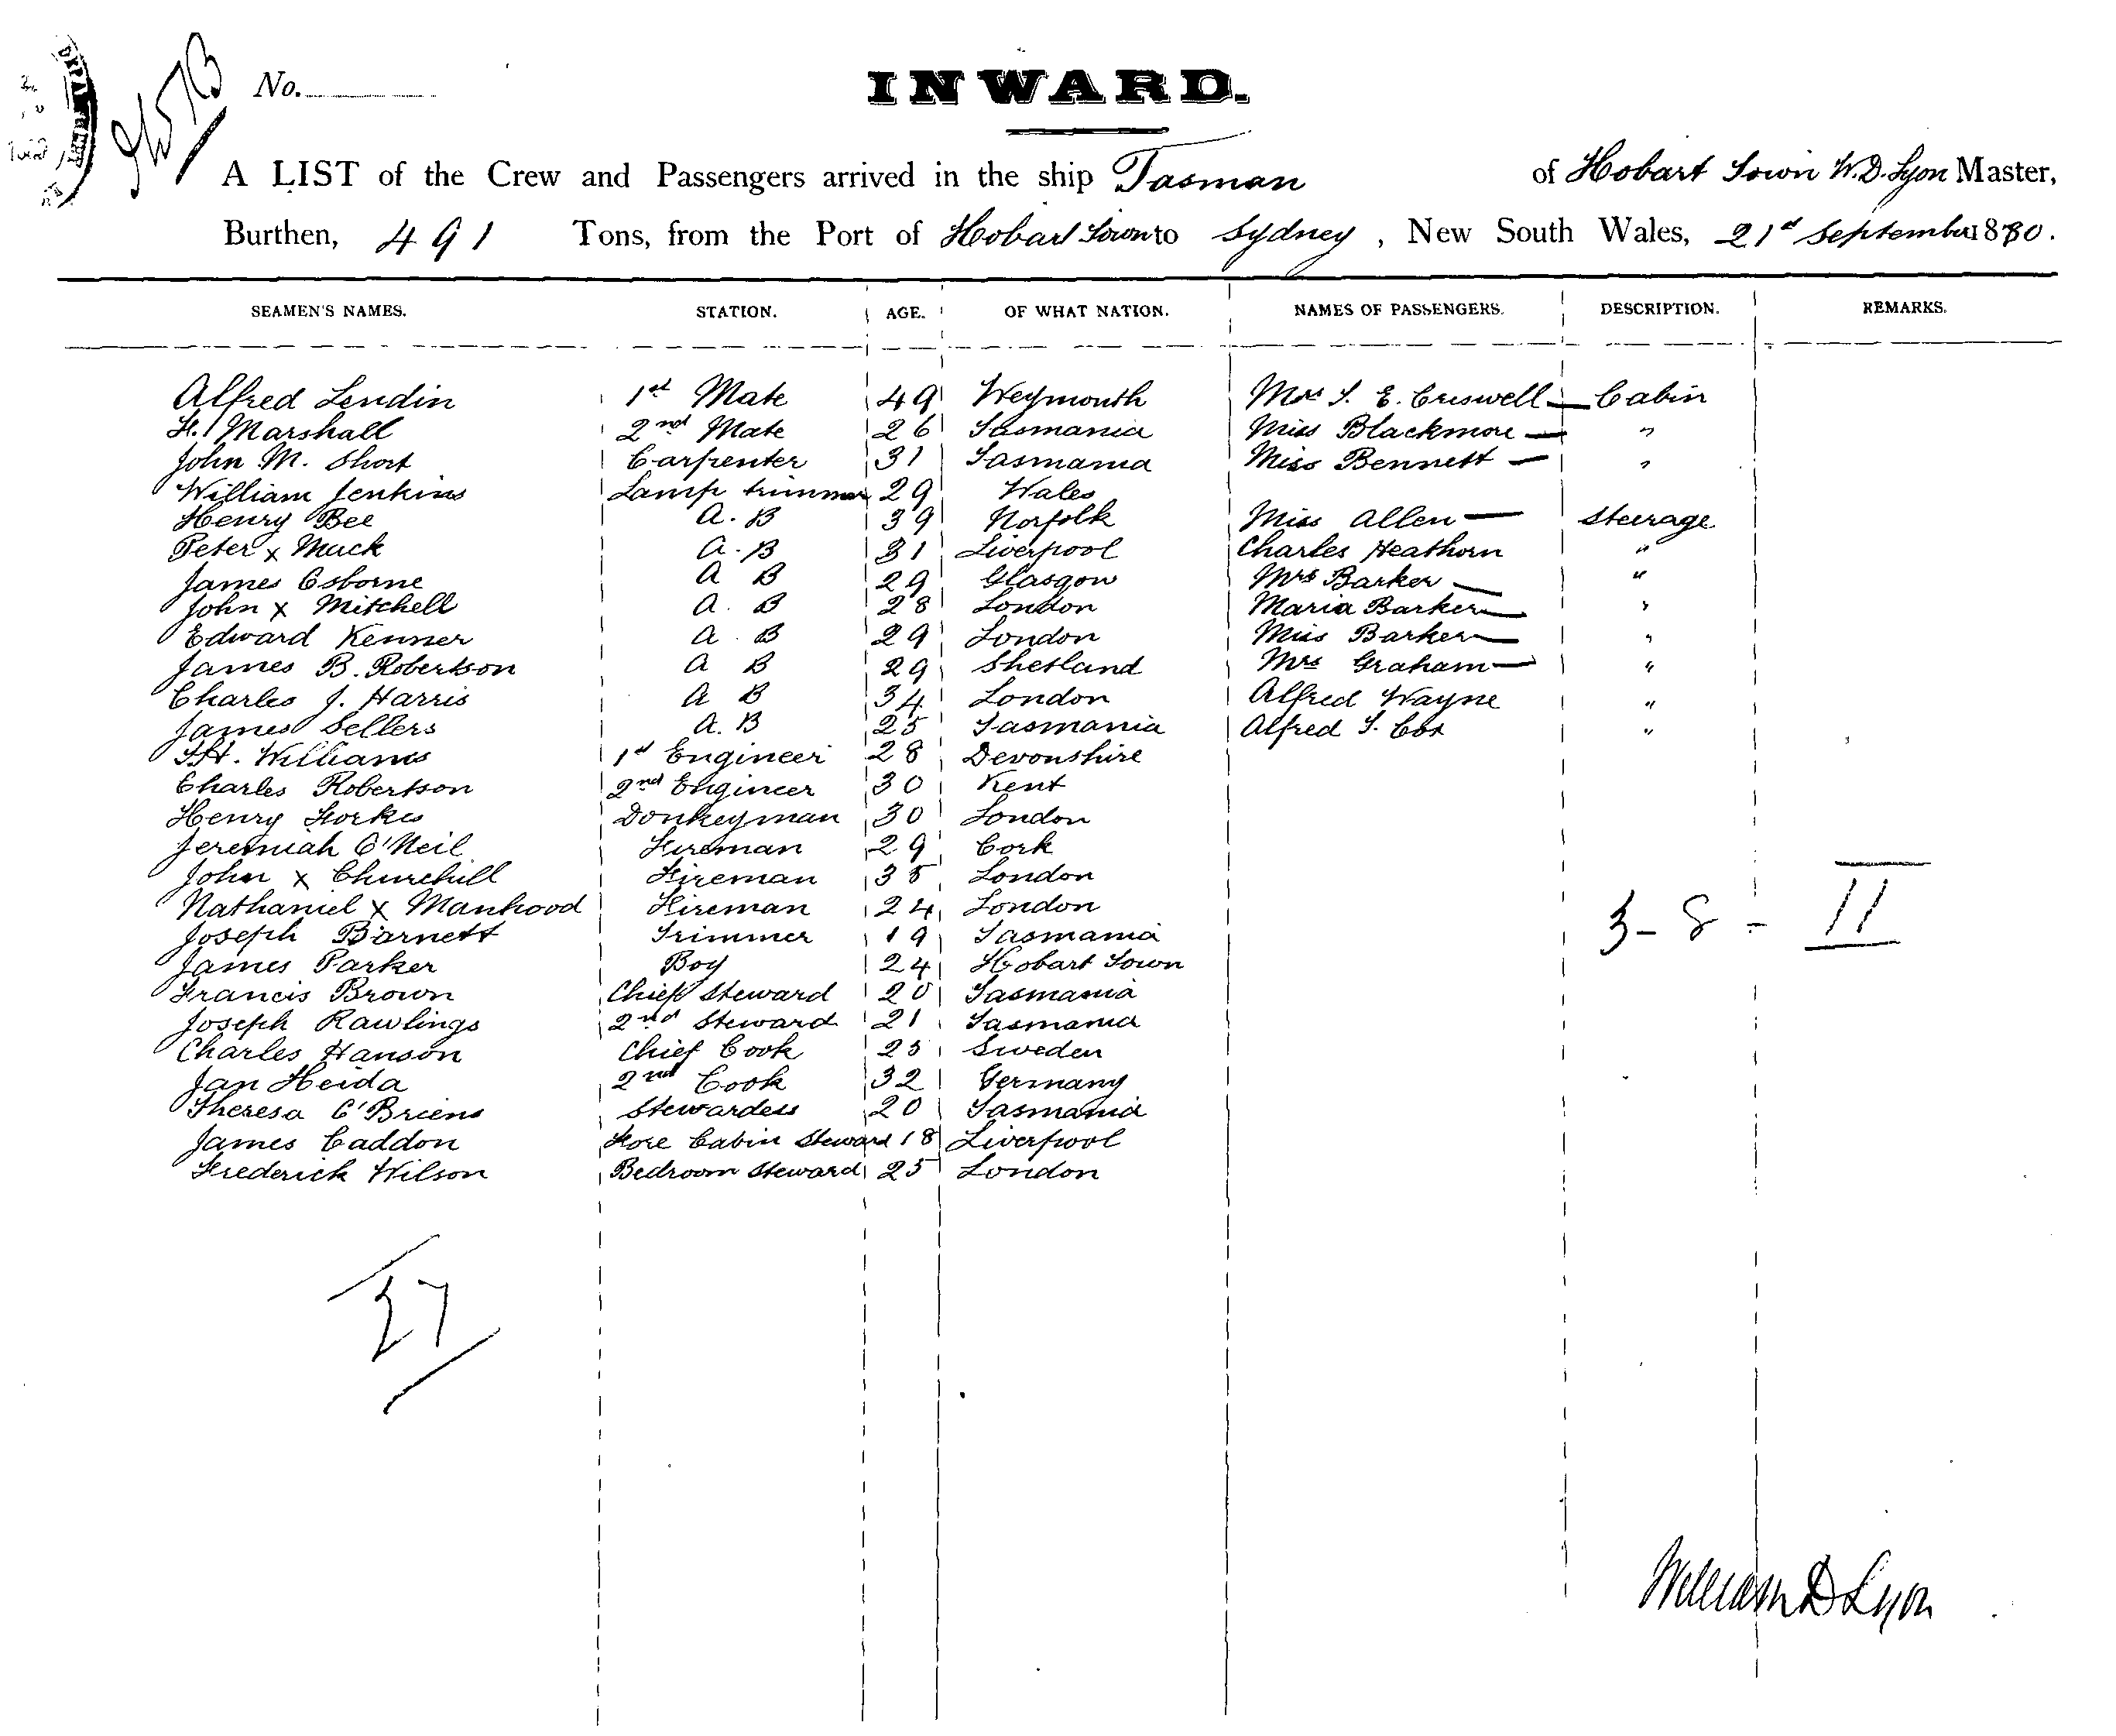 No.
INWARD.
A LIST of the Crew and Passengers arrived in the ship Tasman of Hobart Town W. D. Lyon Master,
Burthen, 491 Tons, from the Port of Hobart Town to Sydney, New South Wales, 21st September 1880.
SEAMEN'S NAMES. STATION. AGE. OF WHAT NATION. NAMES OF PASSENGERS. DESCRIPTION. REMARKS.
Alfred Lendin 1st Mate 49 Weymouth Mrs T. E. Criswell — Cabin
H. Marshall 2nd Mate 26 Tasmania Miss Blackmore — "
John M. Short Carpenter 31 Tasmania Miss Bennett — "
William Jenkins Lamp trimmer 29 Wales
Henry Bee A. B 39 Norfolk Miss Allen — Steerage
Peter x Mack A. B 31 Liverpool Charles Heathorn "
James Osborne A B 29 Glasgow Mrs Barker — "
John x Mitchell A. B 28 London Maria Barker — "
Edward Kenner A. B 29 London Miss Barker — "
James B. Robertson A B 29 Shetland Mrs Graham — "
Charles J. Harris A B 34 London Alfred Wayne "
James Sellers A. B 25 Tasmania Alfred T. Cox "
Williams 1st Engineer 28 Devonshire
Charles Robertson 2nd Engineer 30 Kent
Henry Forkes Donkeyman 30 London
Jeremiah O'Neil Fireman 29 Cork
John x Churchill Fireman 35 London
Nathaniel x Manhood Fireman 24 London
Joseph Barnett Trimmer 19 Tasmania
3 - 8 - 11
James Parker Boy 24 Hobart Town
Francis Brown Chief Steward 20 Tasmania
Joseph Rawlings 2nd Steward 21 Tasmania
Charles Hanson Chief Cook 25 Sweden
Jan Heida 2nd Cook 32 Germany
Theresa O'Briens Stewardess 20 Tasmania
James Caddon Fore Cabin Steward 18 Liverpool
Frederick Wilson Bedroom Steward 25 London
27
William D Lyon